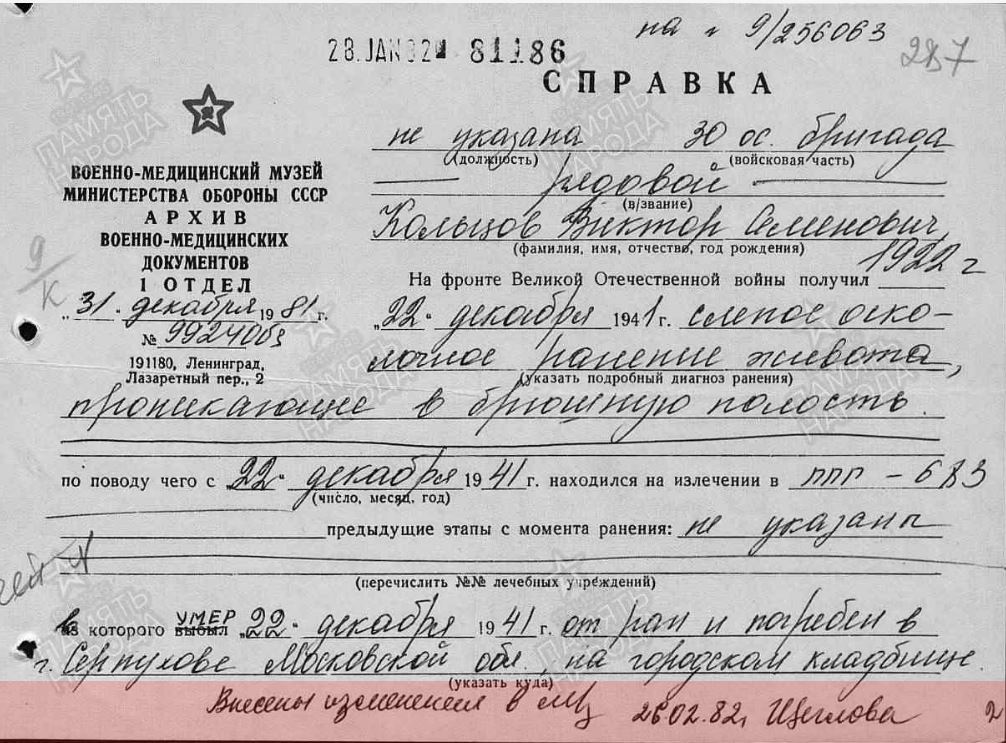 на № 9/256063
28 JAN 82 81186
287
СПРАВКА
не указана 30 ос. бригада
(должность) (войсковая часть)
рядовой
(в/звание)
Кольцов Виктор Семенович,
(фамилия, имя, отчество, год рождения)
1922 г
ВОЕННО-МЕДИЦИНСКИЙ МУЗЕЙ
МИНИСТЕРСТВА ОБОРОНЫ СССР
АРХИВ
ВОЕННО-МЕДИЦИНСКИХ
ДОКУМЕНТОВ
1 ОТДЕЛ
„31" декабря 1981 г.
№ 9924063
191180, Ленинград,
Лазаретный пер., 2
9/К
На фронте Великой Отечественной войны получил
„22" декабря 1941 г. слепое оско-
лочное ранение живота,
(указать подробный диагноз ранения)
проникающее в брюшную полость.
по поводу чего с 22" декабря 1941 г. находился на излечении в ппг – 683
(число, месяц, год)
предыдущие этапы с момента ранения: не указаны
(перечислить №№ лечебных учреждений)
в которого выбыл УМЕР 22" декабря 1941 г. от ран и погребен в
г. Серпухове Московской обл., на городском кладбище.
(указать куда)
Внесены изменения в 26.02.82, Щеглова
2
ПАМЯТЬ НАРОДА